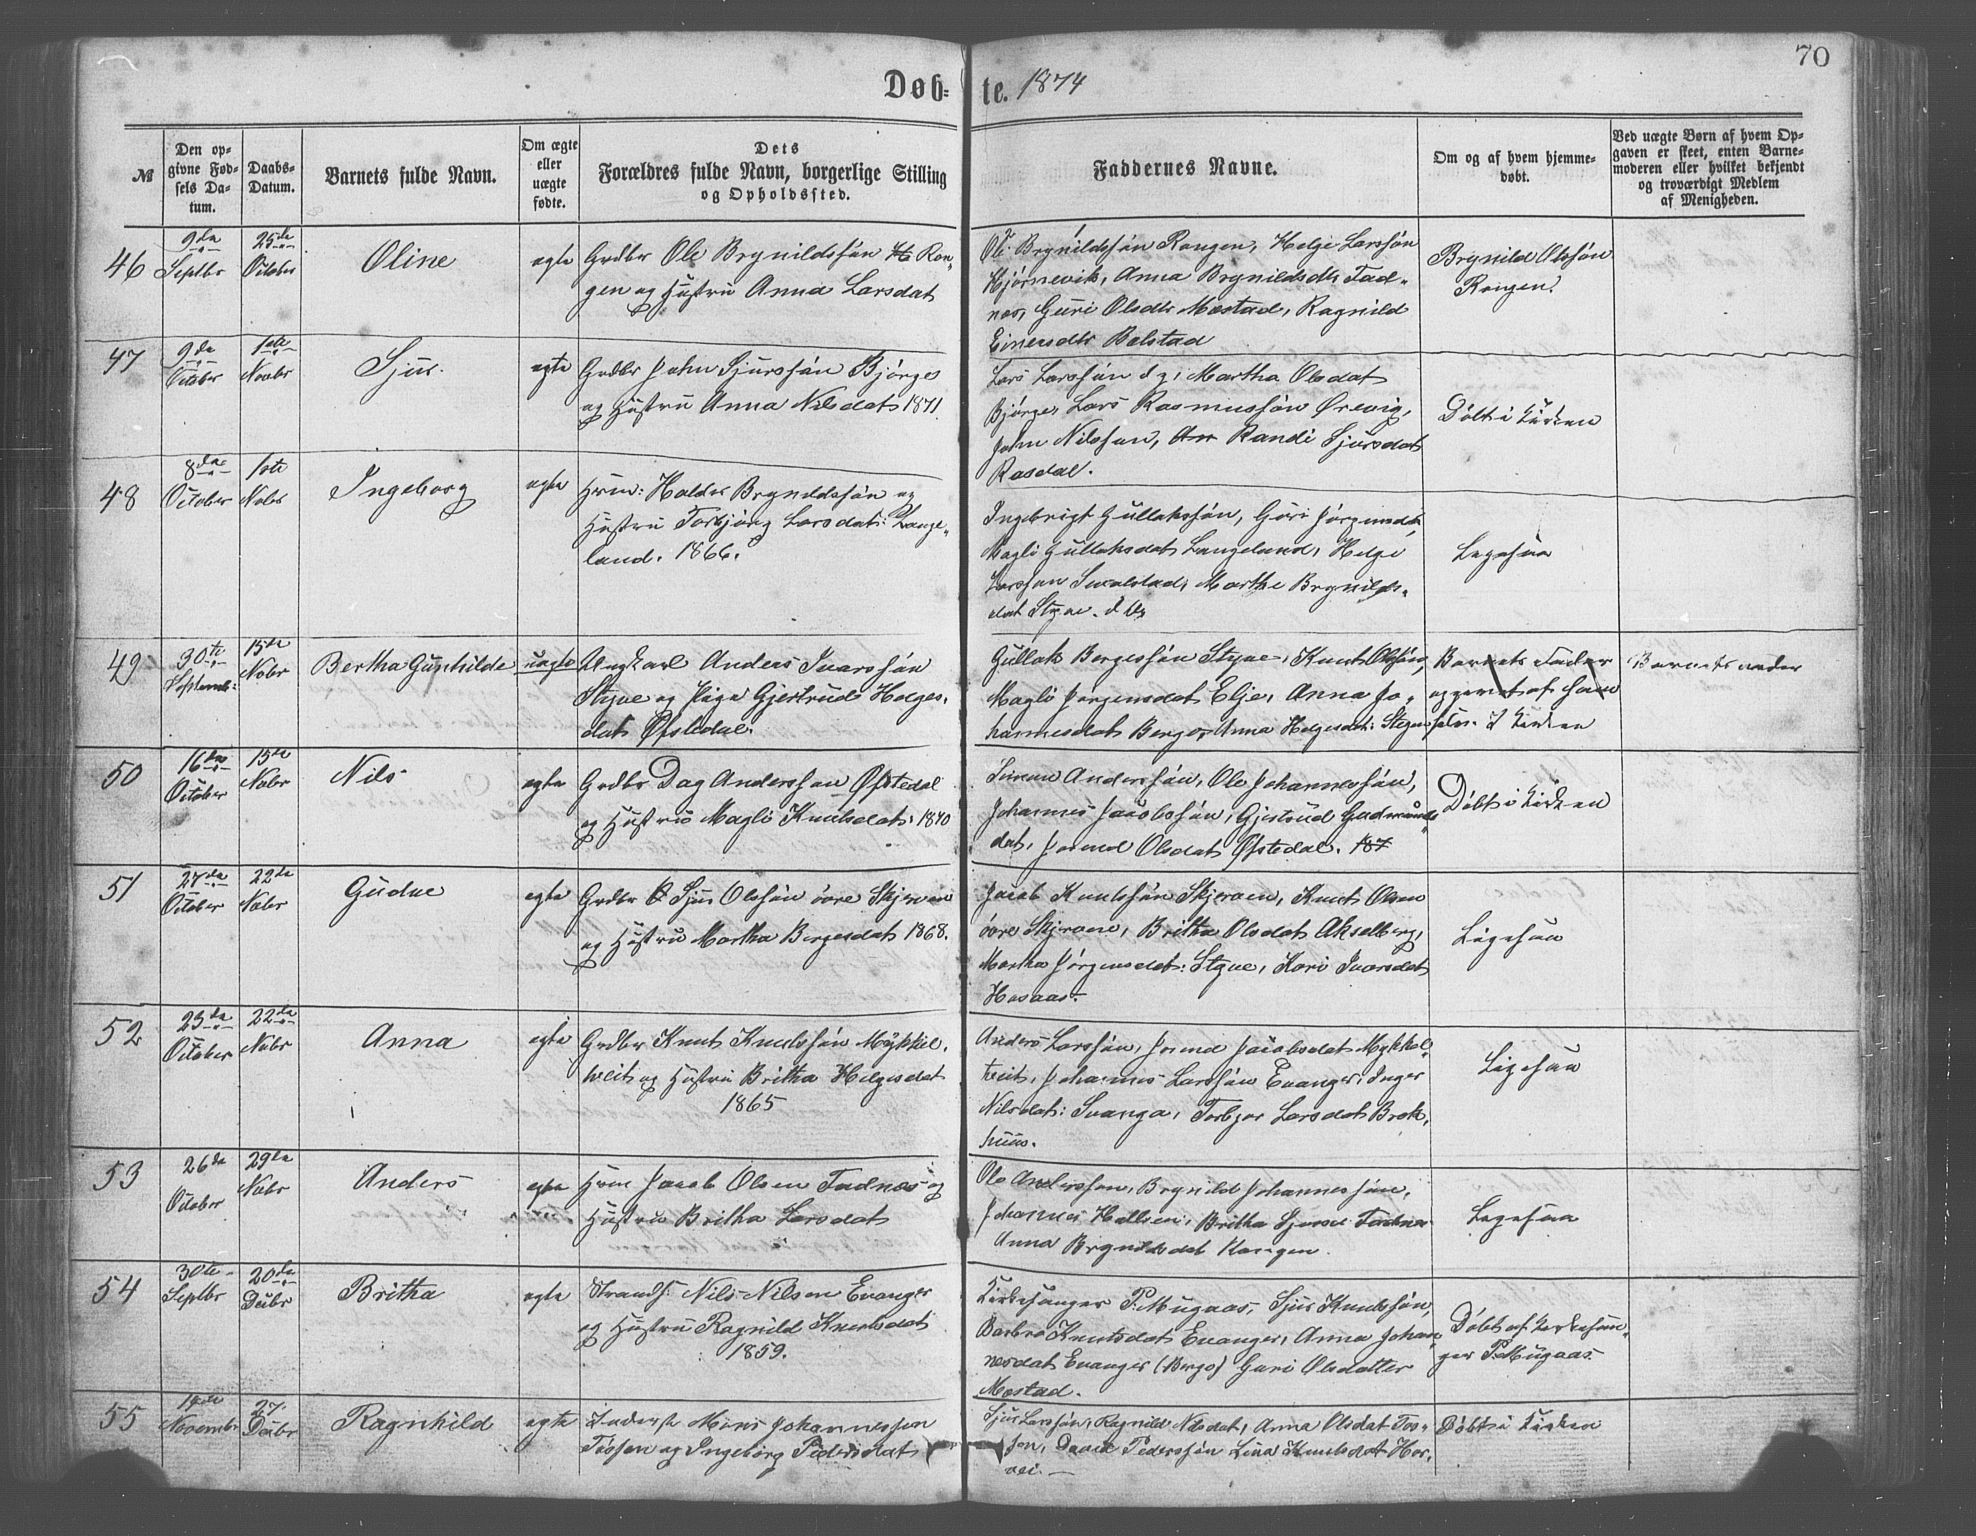 70
Døb-te. 1874
№
Den op-
givne Fød-
sels Da-
tum.
Daabs-
Datum.
Barnets fulde Navn.
Om ægte
eller
uægte
fødte.
Dets
Forældres fulde Navn, borgerlige Stilling
og Opholdssted.
Faddernes Navne.
Om og af hvem hjemme-
døbt.
Ved uægte Børn af hvem Op-
gaven er skeet, enten Barne-
moderen eller hvilket bekjendt
og troværdigt Medlem
af Menigheden.
46
9da
Septbr
25da
October
Oline
egte
Grdbr Ole Brynildssøn Ron-
gen og Hustru Anna Larsdat
Ole Brynildssøn Rongen, Helge Larssøn
Hjørnevik, Anna Brynildsdtr Fad-
nes, Guri Olsdtr Mæstad, Ragnild
Einersdtr Bolstad
Brynild Olssøn
Rongen.
47
9da
October
1ste
Novbr
Sjur
egte
Grdbr John Sjurssøn Bjørge
og Hustru Anna Nilsdat 1871
Lars Larssøn d y, Martha Olsdat
Bjørge, Lars Rasmussøn Ørevig,
John Nilsson, Randi Sjursdat
Rasdal.
Døbt i Kirken
48
8da
October
1ste
Nobr
Ingeborg
egte
Hmd: Haldor Brynildssøn og
Hustru Torbjørg Larsdat: Lange-
land. 1866.
Ingebrigt Gullakssøn, Guri Jørgensdat,
Magli Gullaksdat Langeland, Helge
Larsson Svalstad, Marthe Brynilds-
dat Styve.
Ligesaa
49
30te
Septemb:
15da
Nobr
Bertha Gunhilde
uægte
Ungkarl Anders Ivarssøn
Styve og Pige Gjertrud Helges-
dat Øfstedal.
Gullak Børgessøn Styve, Knut Olssøn,
Magli Jørgensdat Elje, Anna Jo-
hannesdat Berge, Anna Helgesdat:
Barnets Fader
opgivet af ham
selv. I Kirken
Barnets
50
16da
October
15da
Nobr
Nils
egte
Grdbr Dag Andersson Øfstedal
og Hustru Magli Knutsdat: 1870
Simon Anderssøn, Ole Johannessøn,
Johannes Jacobssøn, Gjertrud Gudmunds-
dat, Jormod Olsdat Øfstedal. 187
Døbt i Kirken
51
27da
October
22da
Nobr
Gudve
egte
Grdbr Sjur Olssøn øvre Skjerven
og Hustru Martha Børgesdat 1868.
Jacob Knutssøn Skjerven, Knut Olsen
øvre Skjerven, Britha Olsdat Akselberg,
Martha Jørgensdat: Styve, Kari Ivarsdat
Hosaas.
Ligesaa
52
23da
October
22da
Nobr
Anna
egte
Grdbr Knut Knutssøn Mykkel-
tveit og Hustru Britha Helgesdat
1865
Anders Larssøn, Jormod Jacobsdat Mykkel-
tveit, Johannes Larssøn Evanger, Inger
Nilsdat: Evanger, Torbjør Larsdat Brek-
huus.
Ligesaa
53
26da
October
29da
Nobr
Anders
egte
Hmd Jacob Olsen Fadnes og
Hustru Britha Larsdat
Ole Andersson, Brynild Johannessøn,
Johannes Hallsen, Britha Sjursd: Fadnes
Anna Brynildsdat Rongen.
Ligesaa
54
30te
Septbr
20da
Decbr
Britha
egte
Strands: Nils Nilsen Evanger
og Hustru Ragnild Knutsdat
1859.
Kirkesanger P. Mugaas, Sjur Knutssøn,
Barbro Knutsdat Evanger, Anna Johan-
nesdat Evanger (Berge) Guri Olsdatter
Mæstad.
Døbt af Kirkesan-
ger P. Mugaas.
55
Novembr
27
Decbr
Ragnhild
egte
Inderst Mons Johannesson
Tøssen og Ingeborg Pedersdat
Sjur Larssøn, Ragnild Nilsdat, Anna Olsdat Tøs-
sen, David Pederssøn Lina Knutsdat Hor-
vei.
Døbt i Kirken